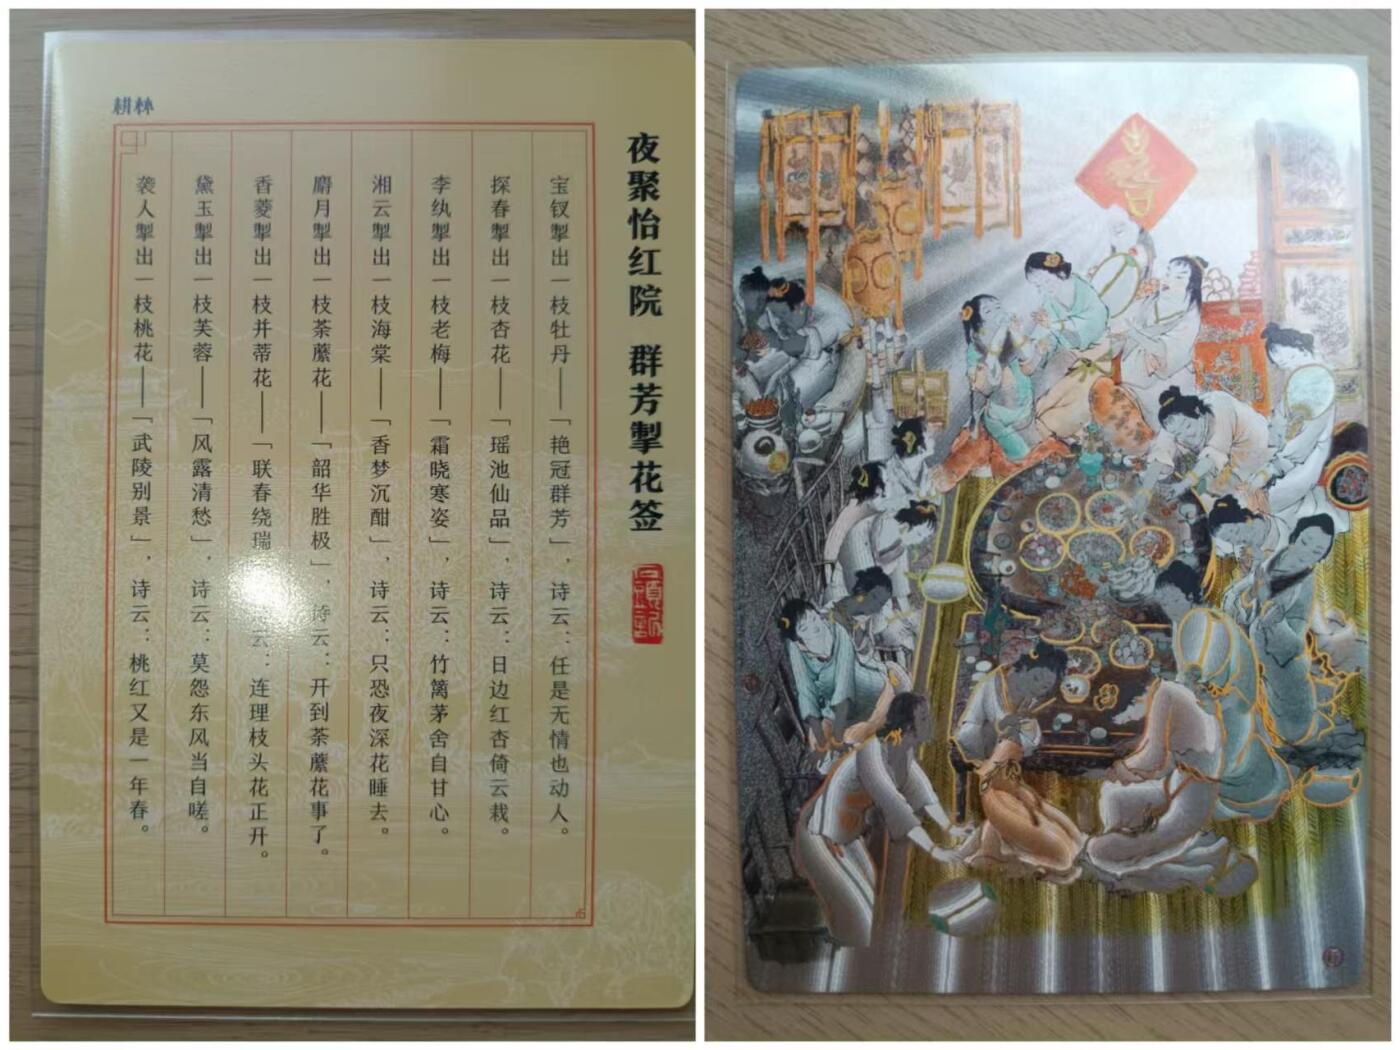 耕林
夜聚怡红院 群芳掣花签
石头记
宝钗掣出一枝牡丹——「艳冠群芳」，诗云：任是无情也动人。
探春掣出一枝杏花——「瑶池仙品」，诗云：日边红杏倚云栽。
李纨掣出一枝老梅——「霜晓寒姿」，诗云：竹篱茅舍自甘心。
湘云掣出一枝海棠——「香梦沉酣」，诗云：只恐夜深花睡去。
麝月掣出一枝荼蘼花——「韶华胜极」，诗云：开到荼蘼花事了。
香菱掣出一枝并蒂花——「联春绕瑞 云：连理枝头花正开。
黛玉掣出一枝芙蓉——「风露清愁」，诗云：莫怨东风当自嗟。
袭人掣出一枝桃花——「武陵别景」，诗云：桃红又是一年春。